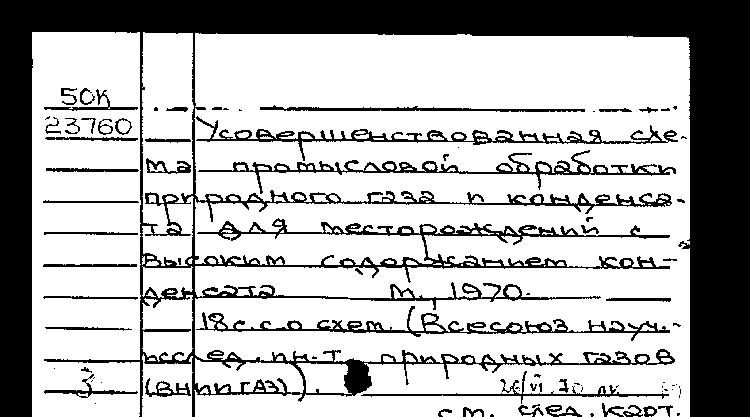 50К
23760 Усовершенствованная схе-
ма промысловой обработки
природного газа и конденса-
та для месторождений с
высоким содержанием кон-
денсата. М., 1970.
18 с. с о схем. (Всесоюз науч.-
исслед. ин-т. природных газов
3 (ВНИИГАЗ)).
26/VI 70 лк
см. след. карт.